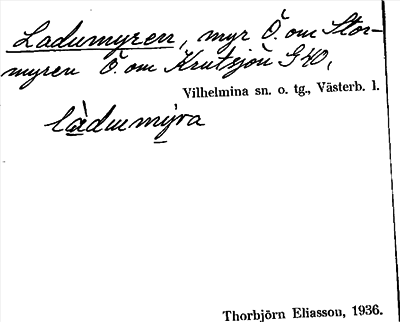 Ladumyren, myr Ö. om Stor-
myren Ö. om Krutsjön G40,
Vilhelmina sn. o. tg., Västerb. l.
làdumýra
Thorbjörn Eliasson, 1936.